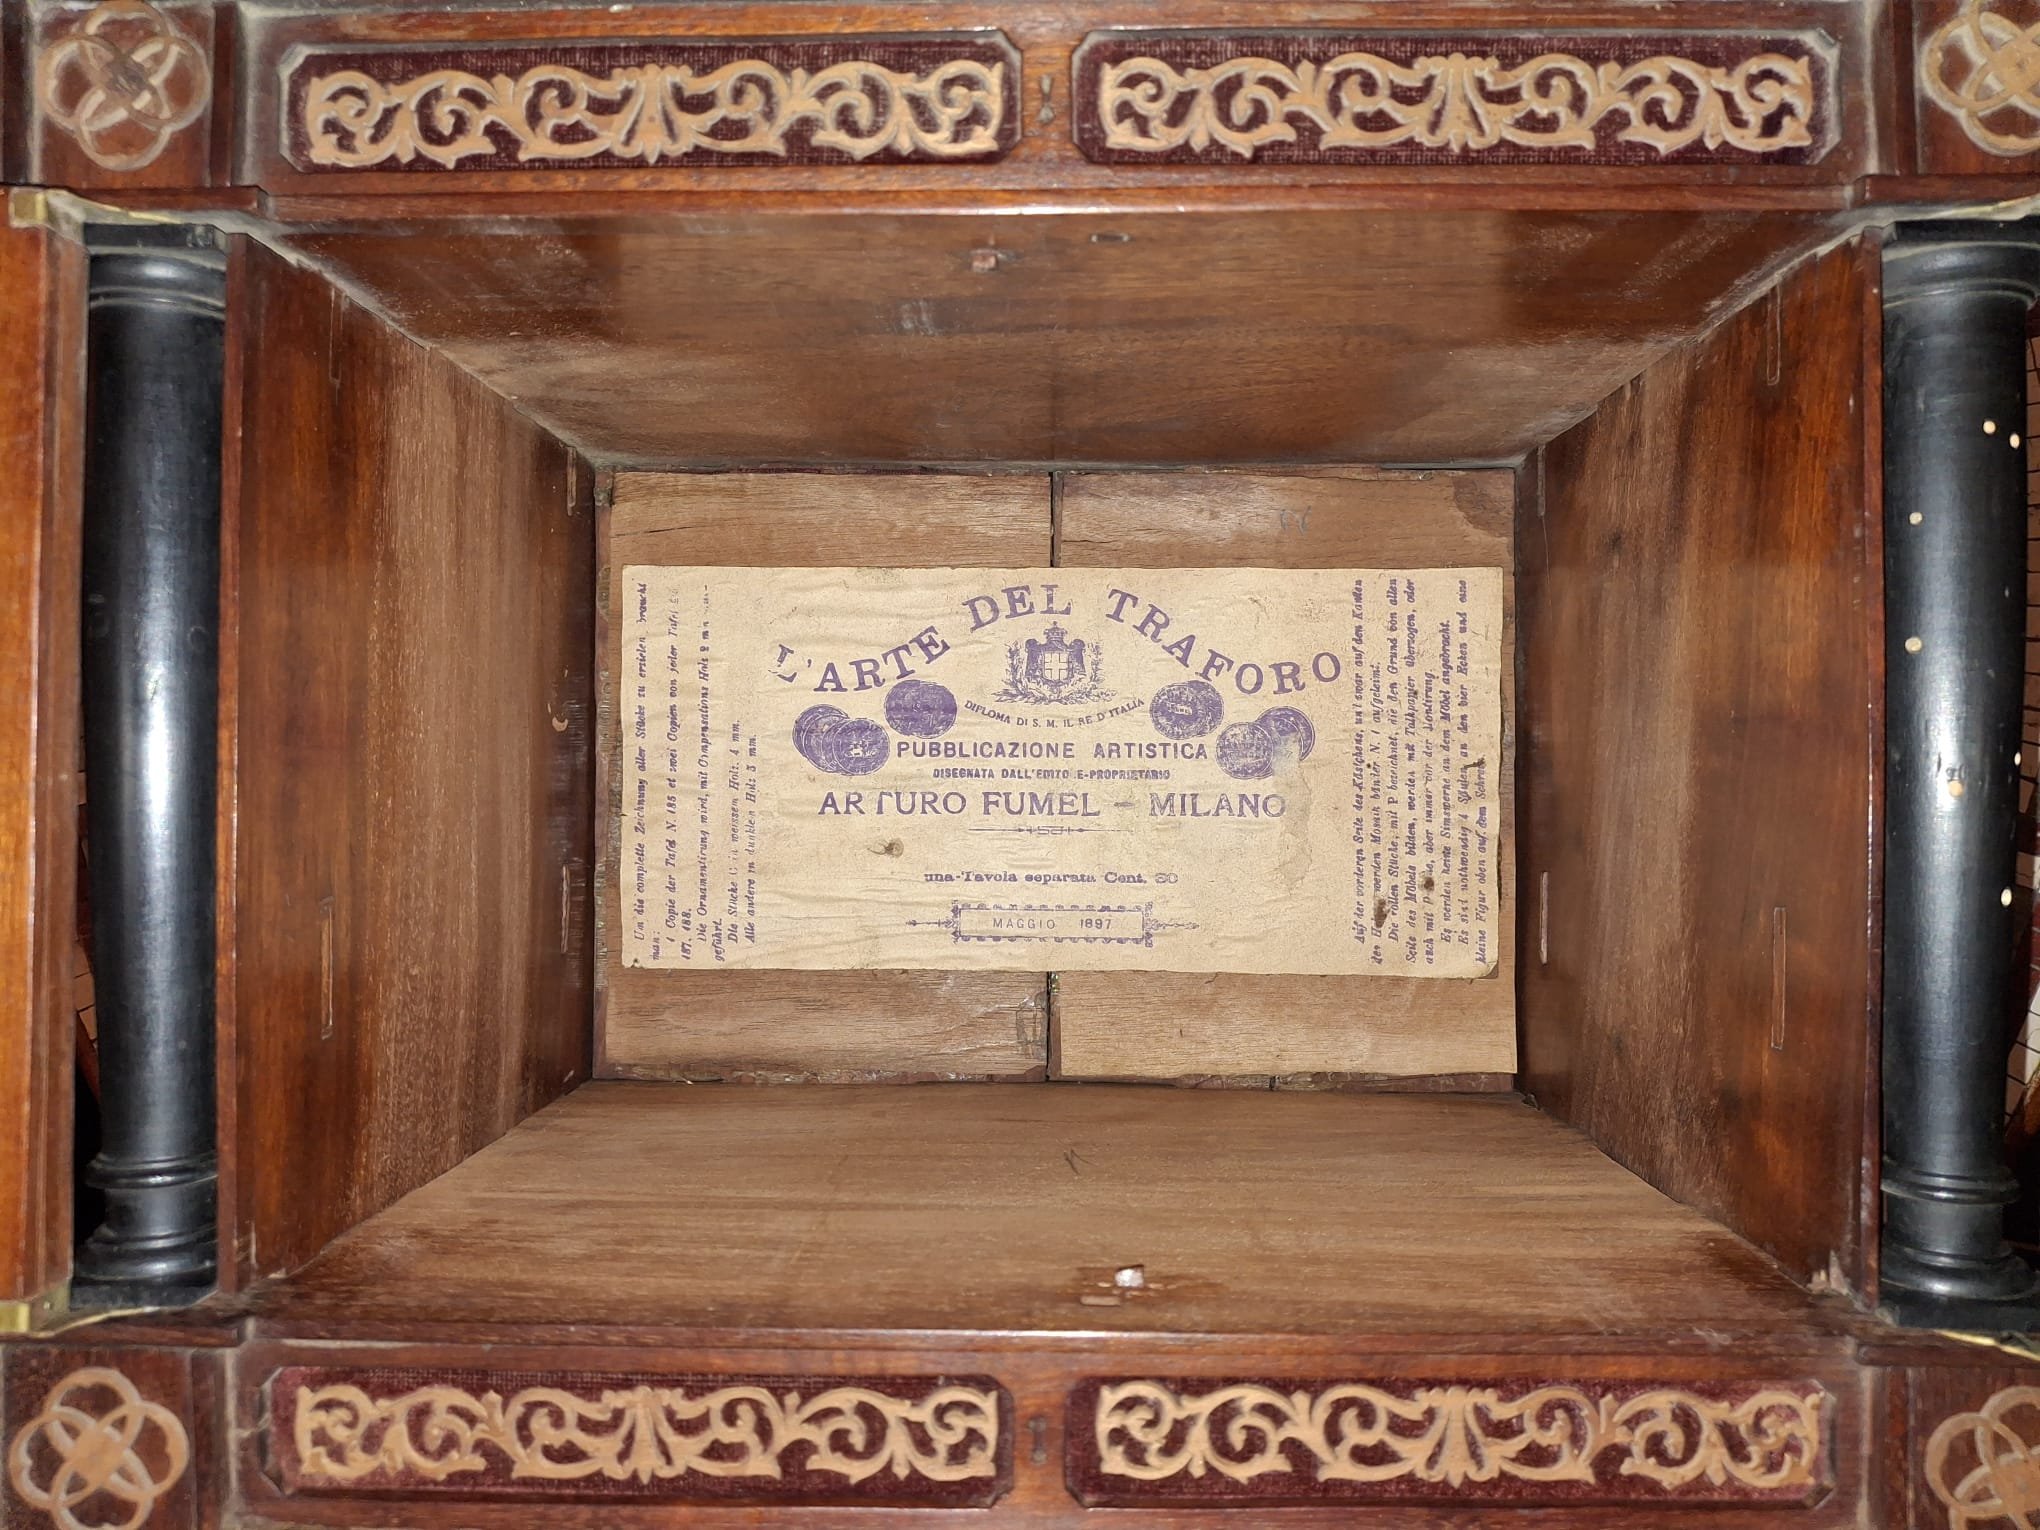 L'ARTE DEL TRAFORO
DIPLOMA DI S. M. IL RE D'ITALIA
PUBBLICAZIONE ARTISTICA
DISEGNATA DALL'EDITO E-PROPRIETARIO
ARTURO FUMEL — MILANO
una Tavola separata Cent.
MAGGIO 1897
Um die complette Zeichnung aller Stücke zu erzielen braucht
man:
1 Copie der Tafel N. 185 et zwei Copien von jeder Tafel
187, 188.
Die Ornamentirung wird, mit Compensations Holz 2 mm
geführt.
Die Stücke in weissem Holz. 4 mm.
Alle andere in dunklen Holz 5 mm.
Auf der vorderen Seite des Kästchens, und zwar auf den Kanten
des werden Mosaik bänder N. 1 aufgeleimt.
Die vollen Stücke, mit P bezeichnet, die den Grund von allen
Seite des Möbels bilden, werden mit Talkpapier überzogen, oder
auch mit aber immer vor der Montirung.
Es werden keine Simswerke an dem Möbel angebracht.
Es sind nothwendig 4 Säulen an den vier Ecken und eine
kleine Figur oben auf dem